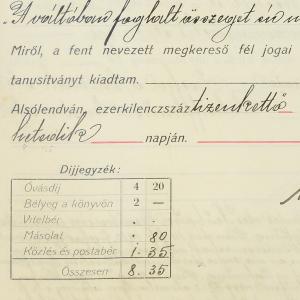 A váltóban foglalt összeget én
Miről, a fent nevezett megkereső fél jogai
tanusítványt kiadtam.
Alsólendván, ezerkilenczszáz tizenkettő
hetedik napján.
Díjjegyzék:
Óvásdíj 4 20
Bélyeg a könyvön 2 —
Vitelbér . .
Másolat . 80
Közlés és postabér 1. 35
Összesen 8. 35